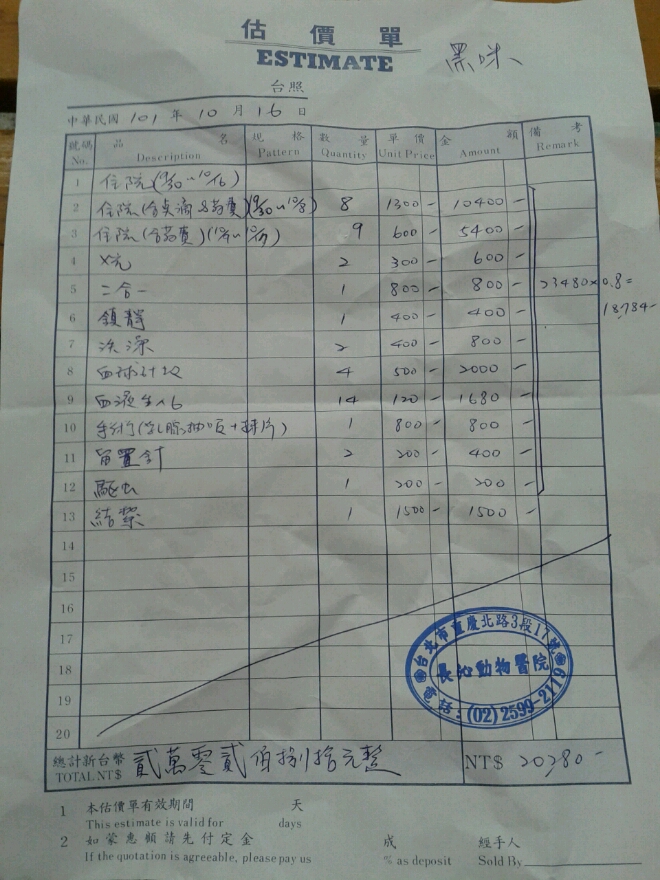 估價單
ESTIMATE
黑咪
台照
中華民國 101 年 10 月 16 日
號碼 No. 品名 Description 規格 Pattern 數量 Quantity 單價 Unit Price 金額 Amount 備考 Remark
1 住院(9/30~10/16)
2 住院(含點滴&藥費)(9/30~10/8) 8 1300- 10400-
3 住院(含藥費) 9 600- 5400-
4 X光 2 300- 600-
5 二合一 1 800- 800-
23480x0.8=
18784-
6 鎮靜 1 400- 400-
7 洗澡 2 400- 800-
8 血球計數 4 500- 2000-
9 血液生化 14 120- 1680-
10 手術(乳腺抽吸+抹片) 1 800- 800-
11 留置針 2 200- 400-
12 驅虫 1 200- 200-
13 結紮 1 1500- 1500-
14
15
16
17
18
19
20
台北市重慶北路3段17號
長沁動物醫院
電話:(02)2599-2119
總計新台幣 TOTAL NT$ 貳萬零貳佰捌拾元整 NT$ 20280-
1 本估價單有效期間 天
This estimate is valid for days
2 如蒙惠顧請先付定金 成 經手人
If the quotation is agreeable, please pay us % as deposit Sold By